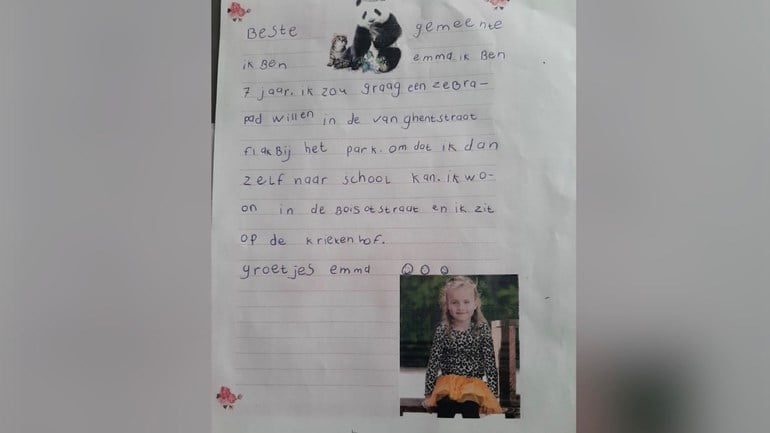 Beste gemeente
ik Ben emma. ik Ben
7 jaar. ik zou graag een zebra-
pad willen in de van ghentstraat
flakBij het park. om dat ik dan
zelf naar school kan. ik wo-
on in de Boisotstraat en ik zit
op de kriekenhof.
groetjes emma